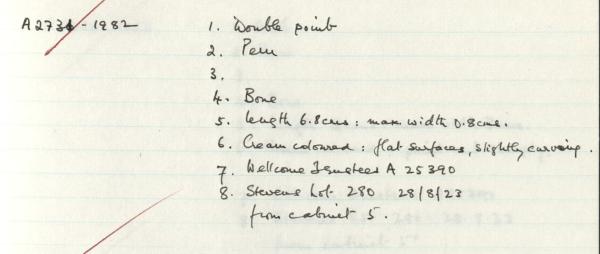 A2731-1982 1. Double point
2. Peru
3.
4. Bone
5. length 6.8cms : max width 0.8cms.
6. Cream coloured : flat surfaces, slightly curving.
7. Wellcome Trustees A 25390
8. Stevens Lot 280 28/8/23
from cabinet 5.